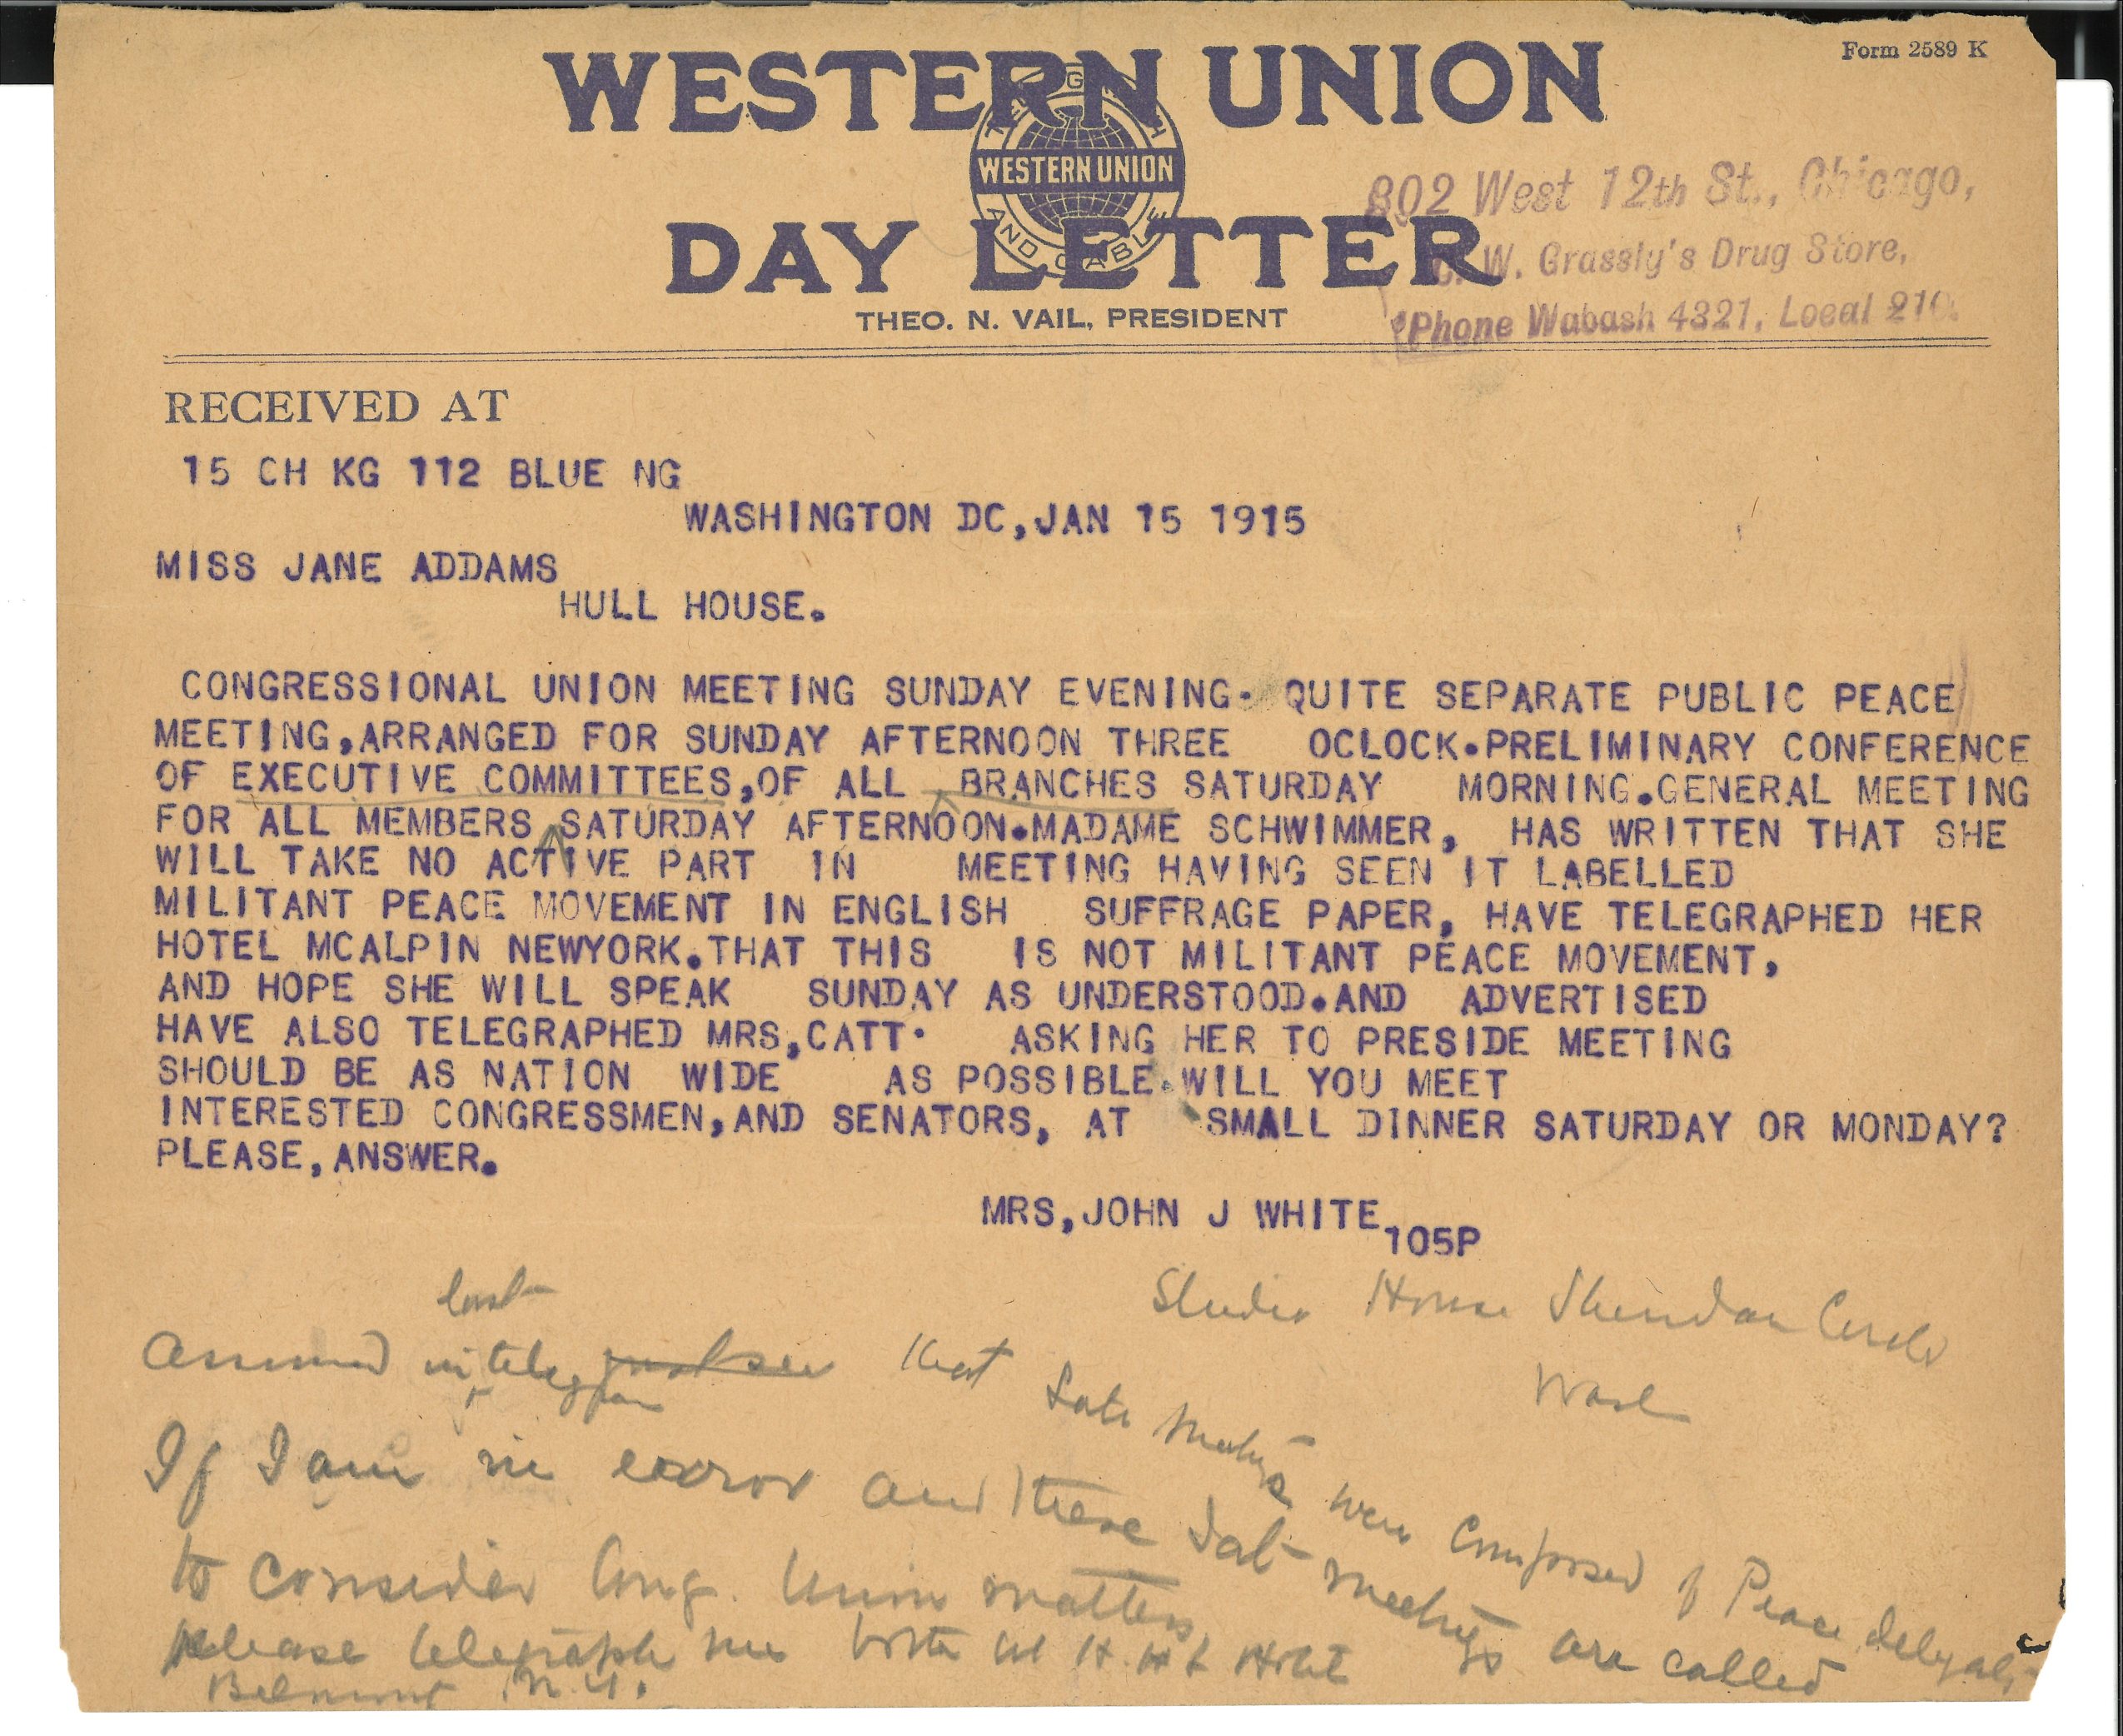 Form 2589 K
WESTERN UNION
TELEGRAPH AND CABLE
WESTERN UNION
DAY LETTER
THEO. N. VAIL, PRESIDENT
802 West 12th St., Chicago,
C. W. Grassly's Drug Store,
Phone Wabash 4321, Local 210.
RECEIVED AT
15 CH KG 112 BLUE NG
WASHINGTON DC,JAN 15 1915
MISS JANE ADDAMS
HULL HOUSE.
CONGRESSIONAL UNION MEETING SUNDAY EVENING. QUITE SEPARATE PUBLIC PEACE
MEETING,ARRANGED FOR SUNDAY AFTERNOON THREE OCLOCK.PRELIMINARY CONFERENCE
OF EXECUTIVE COMMITTEES,OF ALL BRANCHES SATURDAY MORNING.GENERAL MEETING
FOR ALL MEMBERS SATURDAY AFTERNOON.MADAME SCHWIMMER, HAS WRITTEN THAT SHE
WILL TAKE NO ACTIVE PART IN MEETING HAVING SEEN IT LABELLED
MILITANT PEACE MOVEMENT IN ENGLISH SUFFRAGE PAPER, HAVE TELEGRAPHED HER
HOTEL MCALPIN NEWYORK.THAT THIS IS NOT MILITANT PEACE MOVEMENT,
AND HOPE SHE WILL SPEAK SUNDAY AS UNDERSTOOD.AND ADVERTISED
HAVE ALSO TELEGRAPHED MRS,CATT. ASKING HER TO PRESIDE MEETING
SHOULD BE AS NATION WIDE AS POSSIBLE.WILL YOU MEET
INTERESTED CONGRESSMEN,AND SENATORS, AT SMALL DINNER SATURDAY OR MONDAY?
PLEASE,ANSWER.
MRS,JOHN J WHITE
105P
Studio House Sheridan Circle
Wash
last
Assumed in telegram that Sat. meetings were composed of Peace delegates
If I am in error and these Sat meetings are called
to consider Cong. Union matters
please telegraph me Hotel
Belmont N.Y.